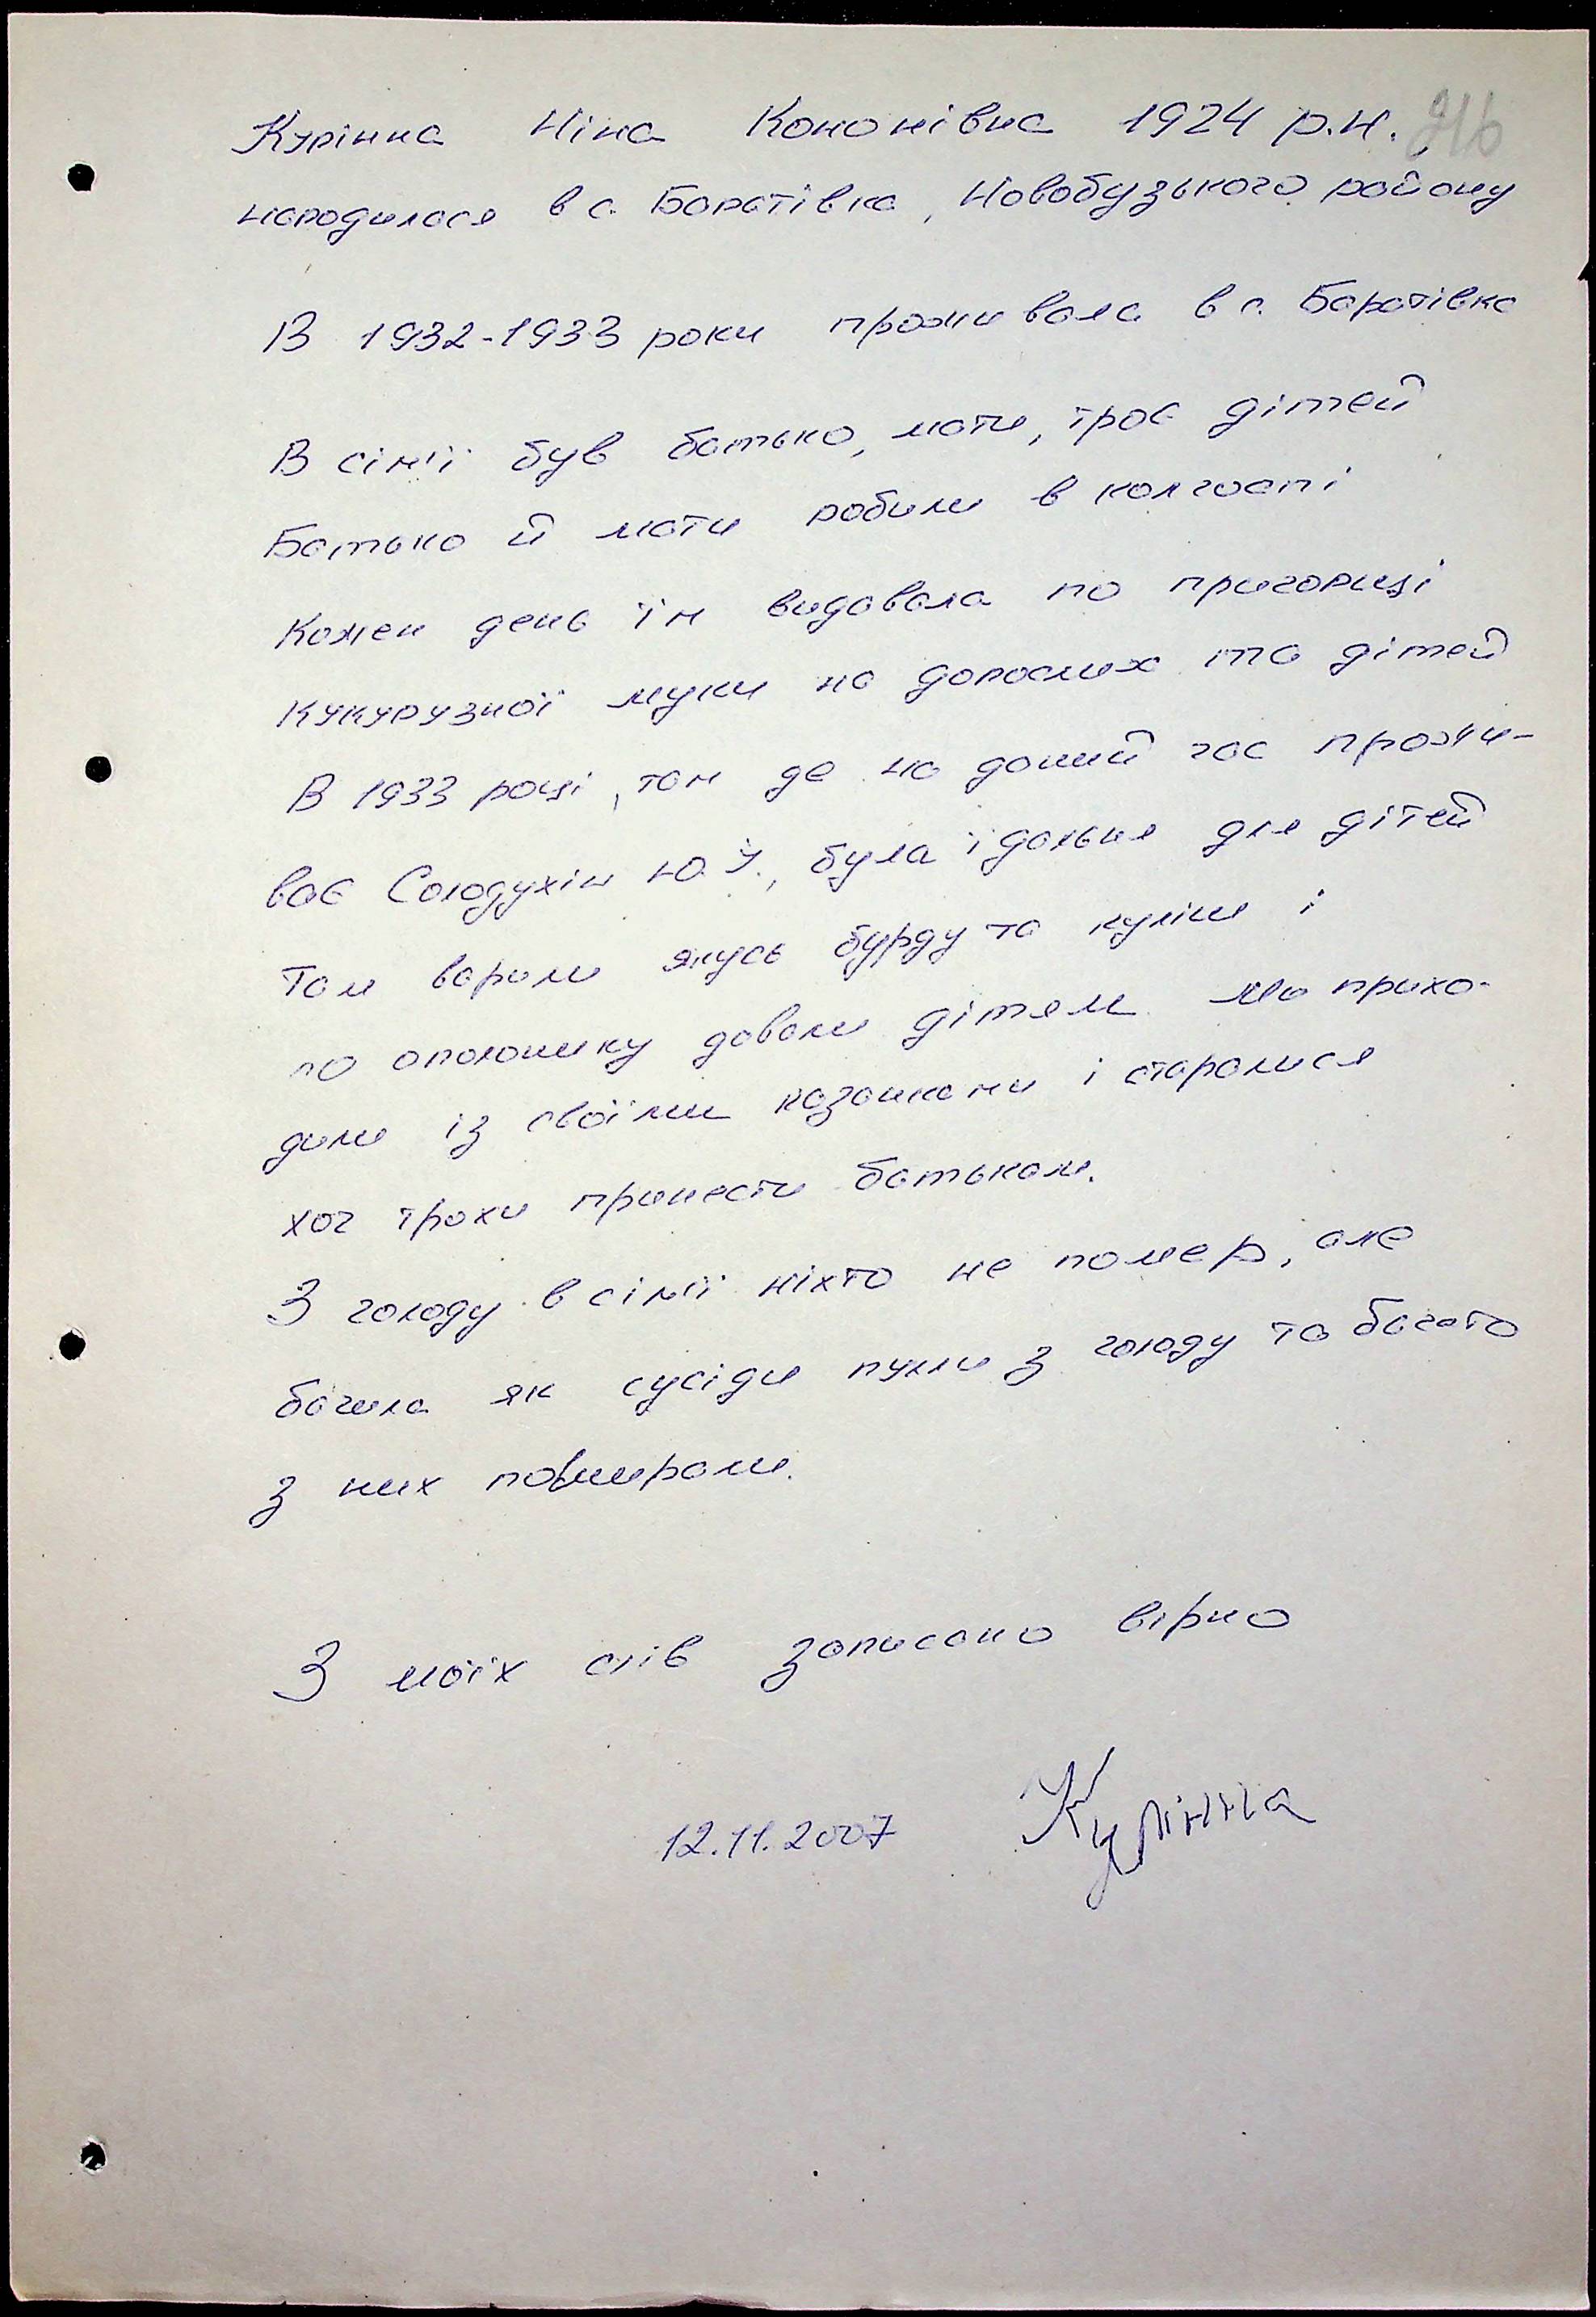 Курінна Ніна Кононівна 1924 р.н. 216
народилася в с. Баратівка, Новобузького району
В 1932-1933 роки проживала в с. Баратівка
В сім'ї був батько, мати, троє дітей
Батько й мати робили в колгоспі
Кожен день їм видавала по пригорщі
кукурузної муки на дорослих та дітей
В 1933 році, там де на даний час прожи-
ває Солодухін Ю.У., була їдальня для дітей
Там варили якусь бурду та куліш і
по ополонику давали дітям. Ми прихо-
дили із своїми казанками і старалися
хоч трохи принести батькам.
З голоду в сім'ї ніхто не помер, але
бачила як сусіди пухли з голоду та багато
з них повмирали.
З моїх слів записано вірно
12.11.2007 Курінна